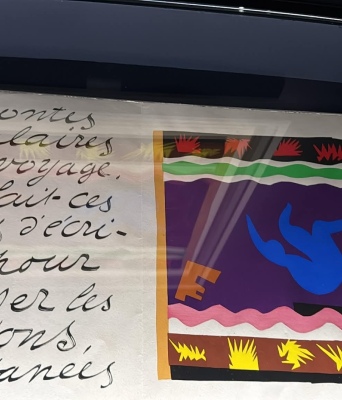 ontes
laires
voyage.
fait ces
d'écri-
pour
ser les
ons,
tanées